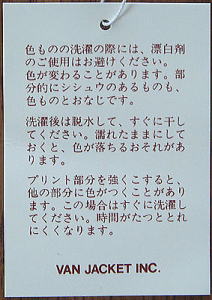 色ものの洗濯の際には、漂白剤
のご使用はお避けください。
色が変わることがあります。部
分的にシシュウのあるものも、
色ものとおなじです。
洗濯後は脱水して、すぐに干し
てください。濡れたままにして
おくと、色が落ちるおそれがあ
ります。
プリント部分を強くこすると、
他の部分に色がつくことがあり
ます。この場合はすぐに洗濯し
てください。時間がたつととれ
にくくなります。
VAN JACKET INC.